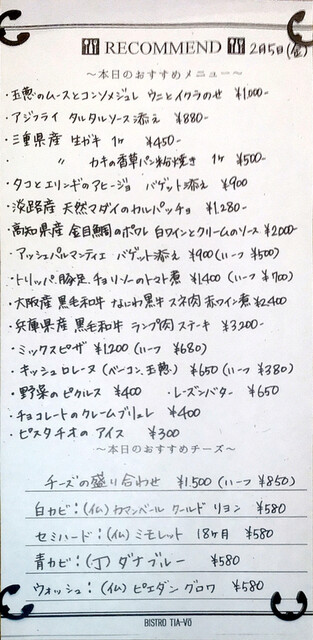 RECOMMEND 2月5日(金)
～本日のおすすめメニュー～
・玉葱のムースとコンソメジュレ ウニとイクラのせ ¥1,000-
・アジフライ タルタルソース添え ¥880-
・三重県産 生ガキ 1ヶ ¥450-
・ 〃 カキの香草パン粉焼き 1ヶ ¥500-
・タコとエリンギのアヒージョ バゲット添え ¥900
・淡路産 天然マダイのカルパッチョ ¥1,280-
・高知県産 金目鯛のポワレ 白ワインとクリームのソース ¥2000-
・アッシュパルマンティエ バゲット添え ¥900 (ハーフ ¥500)
・トリッパ、豚足、チョリソーのトマト煮 ¥1400 (ハーフ ¥700)
・大阪産 黒毛和牛 なにわ黒牛 スネ肉 赤ワイン煮 ¥2,400
・兵庫県産 黒毛和牛 ランプ肉 ステーキ ¥3,200-
・ミックスピザ ¥1,200 (ハーフ ¥680)
・キッシュロレーヌ (ベーコン、玉葱) ¥650 (ハーフ ¥380)
・野菜のピクルス ¥400 ・レーズンバター ¥650
・チョコレートのクレームブリュレ ¥400
・ピスタチオのアイス ¥300
～本日のおすすめチーズ～
チーズの盛り合わせ ¥1,500 (ハーフ ¥850)
白カビ：(仏) カマンベール クールド リヨン ¥580
セミハード：(仏) ミモレット 18ヶ月 ¥580
青カビ：(丁) ダナブルー ¥580
ウォッシュ：(仏) ピエダン グロワ ¥580
BISTRO TIA-VO